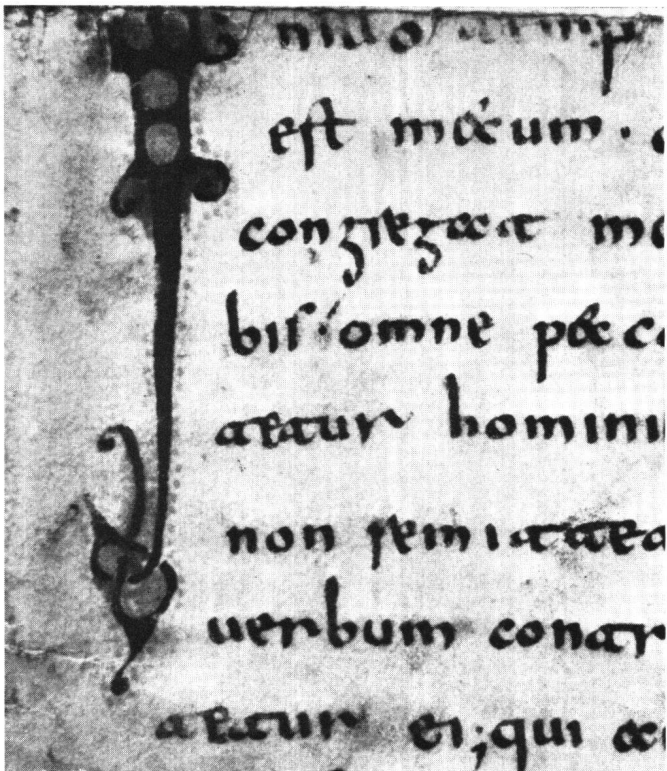 n illo temp
est mecum ·
congregat me
bis · omne pecc
tetur homini
non remitte
uerbum contr
tetur ei; qui